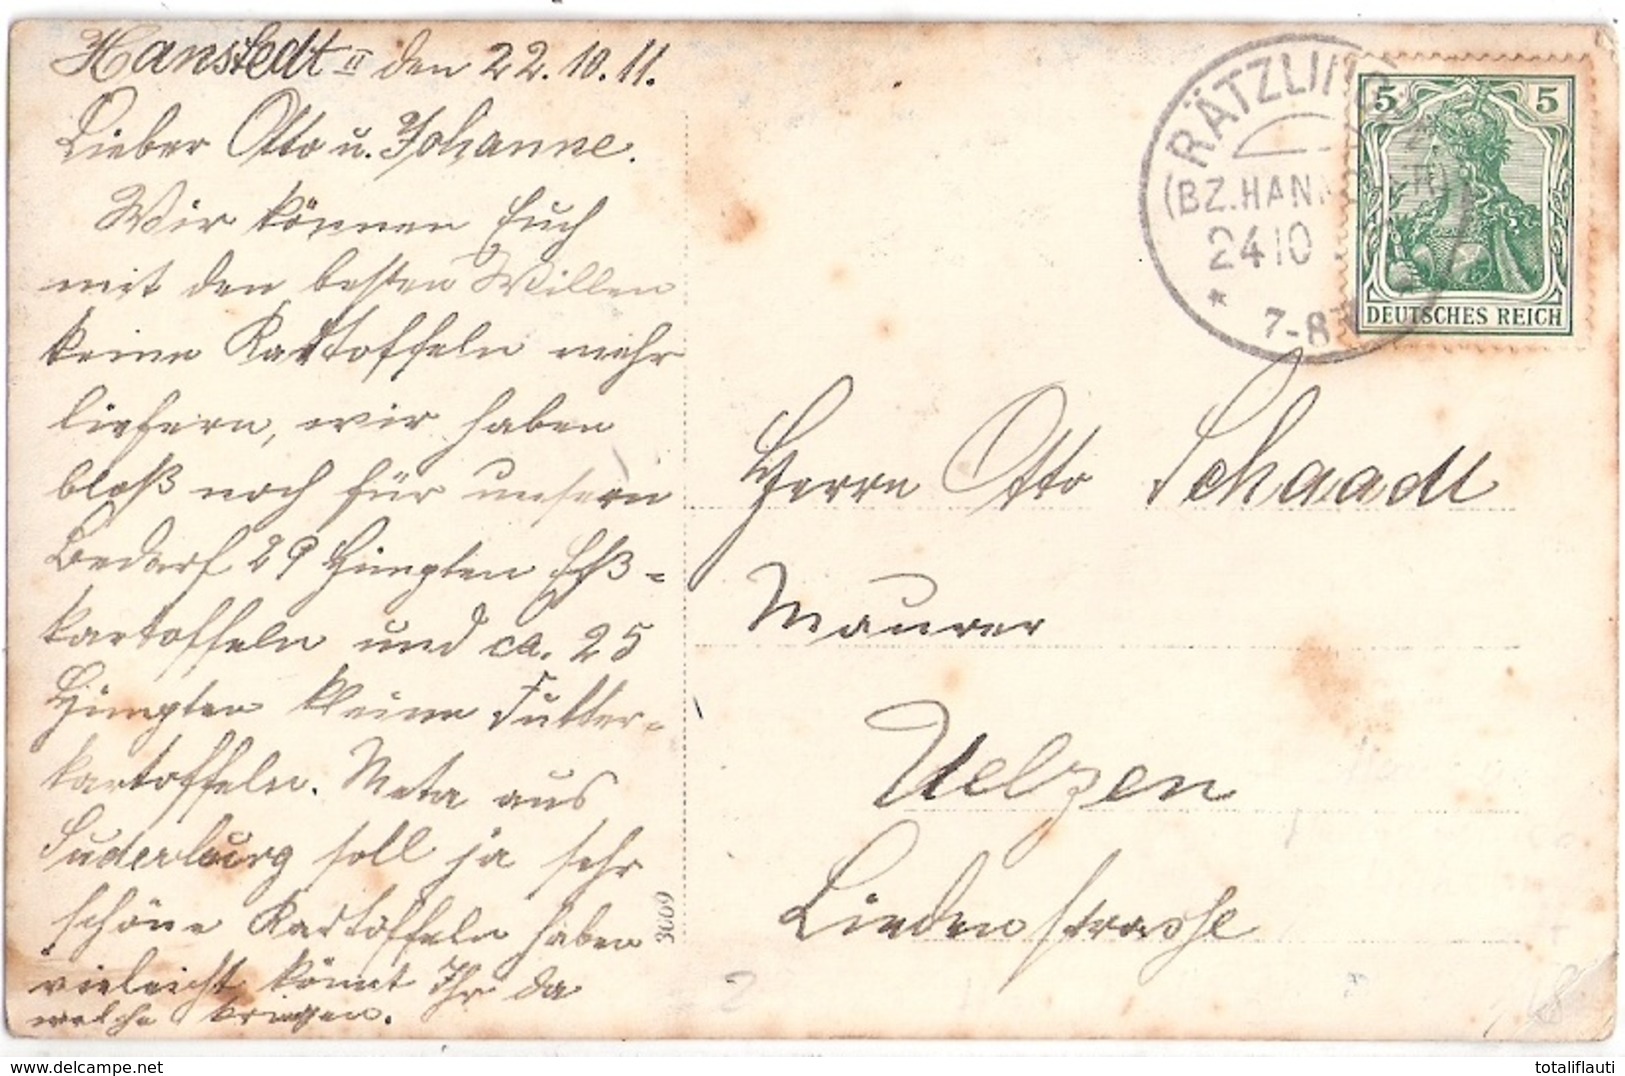 Hanstedt II den 22.10.11.
Lieber Otto u. Johanne.
Wir können Euch
mit den besten Willen
keine Kartoffeln mehr
liefern, wir haben
bloß noch für unsern
Bedarf 29 Himpten Eß-
kartoffeln und ca. 25
Himpten kleine Futter-
kartoffeln. Meta aus
Suderburg soll ja sehr
schöne Kartoffeln haben
vieleicht könnt Ihr da
welche kriegen.
RÄTZLING
(BZ. HANN
24 10
7-8
5 5
DEUTSCHES REICH
Herrn Otto Schaadt
Maurer
Uelzen
Liedenstrasse
3009
totaliflauti